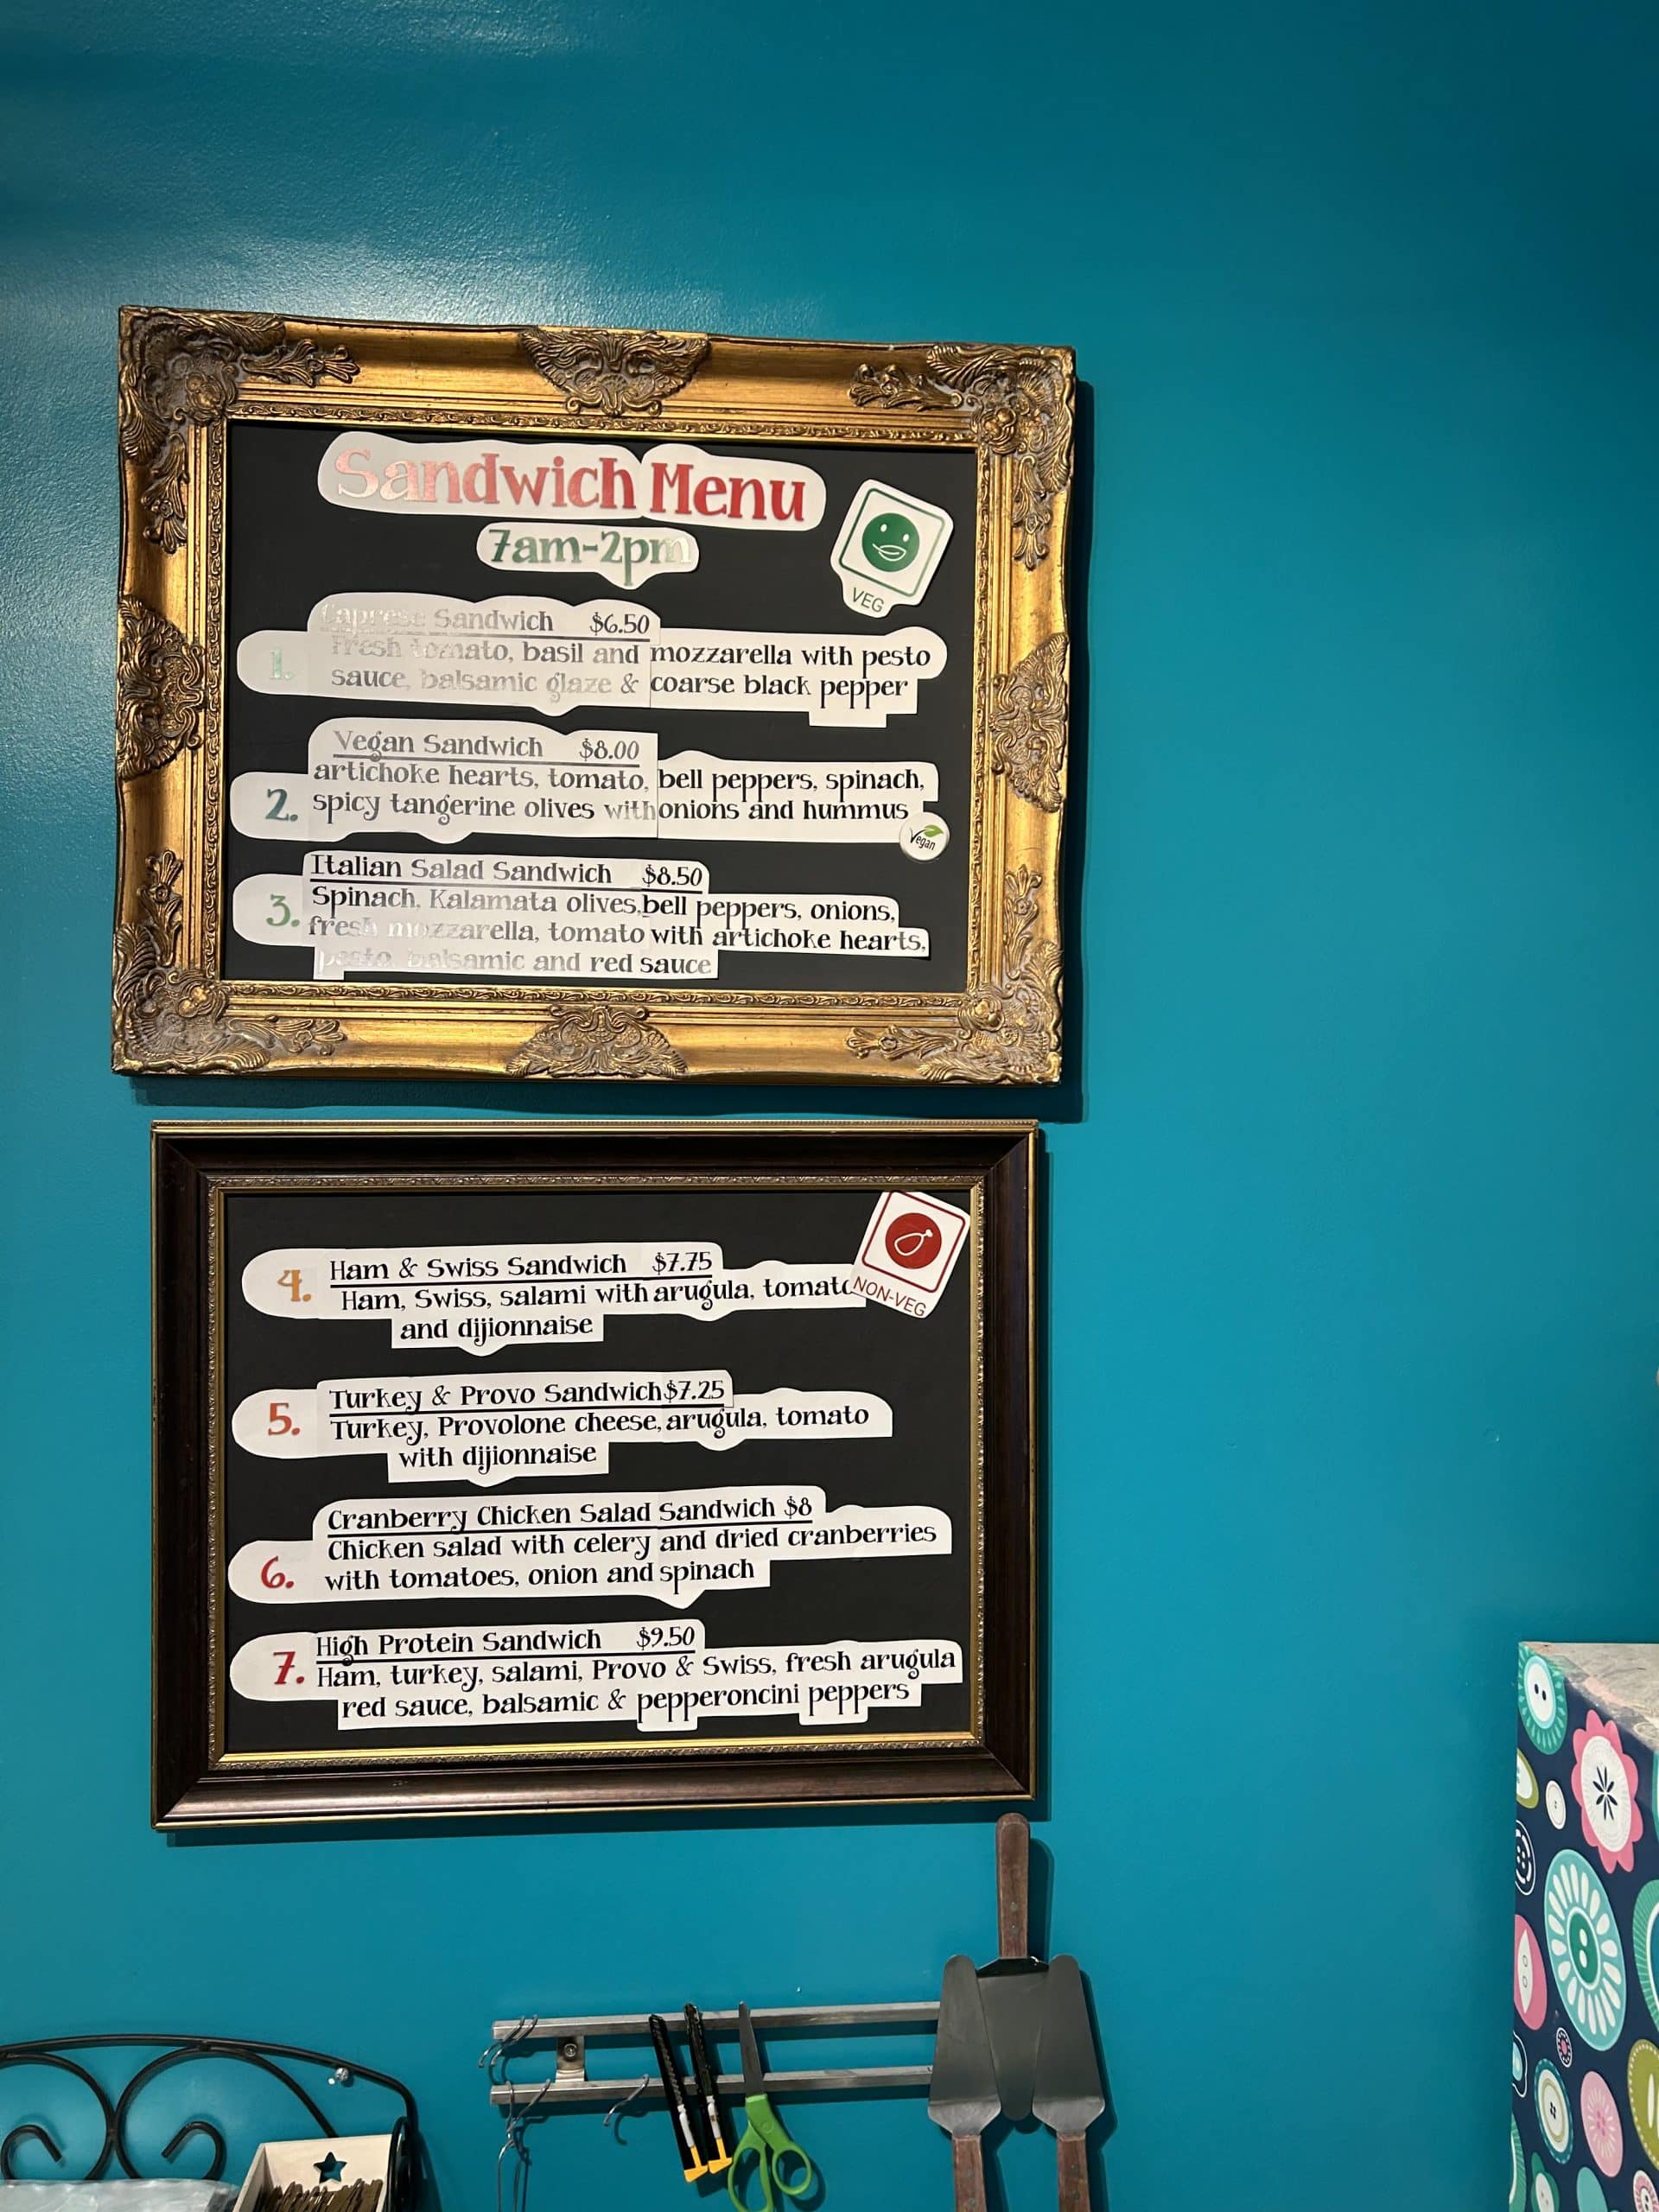 Sandwich Menu
7am-2pm
VEG
Caprese Sandwich $6.50
1. Fresh tomato, basil and mozzarella with pesto
sauce, balsamic glaze & coarse black pepper
Vegan Sandwich $8.00
artichoke hearts, tomato, bell peppers, spinach,
2. spicy tangerine olives with onions and hummus
Vegan
Italian Salad Sandwich $8.50
3. Spinach, Kalamata olives, bell peppers, onions,
fresh mozzarella, tomato with artichoke hearts,
pesto, balsamic and red sauce
NON-VEG
4. Ham & Swiss Sandwich $7.75
Ham, Swiss, salami with arugula, tomato
and dijionnaise
Turkey & Provo Sandwich $7.25
5. Turkey, Provolone cheese, arugula, tomato
with dijionnaise
Cranberry Chicken Salad Sandwich $8
Chicken salad with celery and dried cranberries
6. with tomatoes, onion and spinach
High Protein Sandwich $9.50
7. Ham, turkey, salami, Provo & Swiss, fresh arugula
red sauce, balsamic & pepperoncini peppers